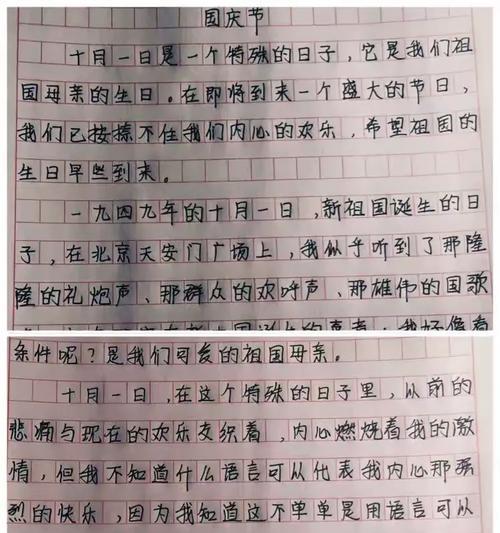 国庆节
十月一日是一个特殊的日子，它是我们祖
国母亲的生日。在即将到来一个盛大的节日，
我们已按捺不住我们内心的欢乐，希望祖国的
生日早些到来。
一九四九年的十月一日，新祖国诞生的日
子，在北京天安门广场上，我似乎听到了那隆
隆的礼炮声、那群众的欢呼声、那雄伟的国歌
条件呢？是我们可爱的祖国母亲。
十月一日，在这个特殊的日子里，从前的
悲痛与现在的欢乐交织着，内心燃烧着我的激
情，但我不知道什么语言可以代表我内心那强
烈的快乐，因为我知道这不单单是用语言可以